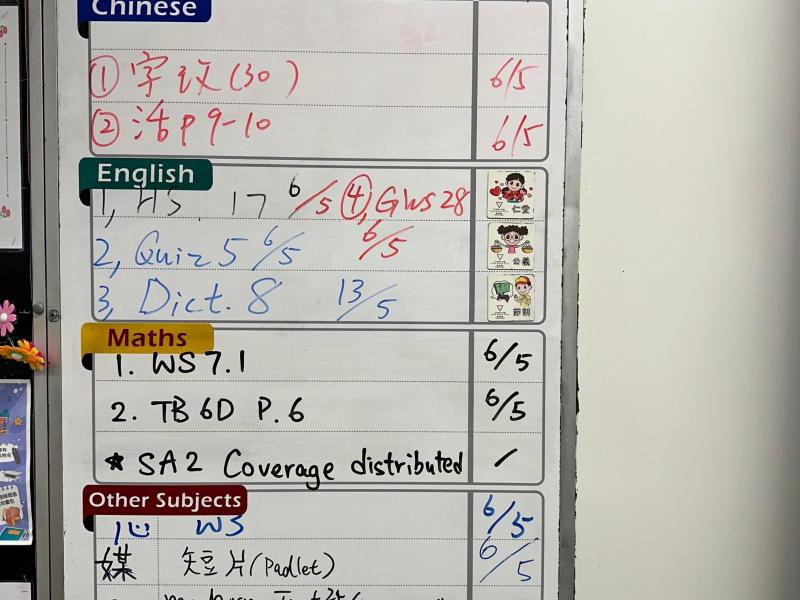 Chinese
① 字 (30) 6/5
② 活 P 9-10 6/5
English
1, HS. 17 6/5 ④, GWS 28 6/5
仁愛
2, Quiz 5 6/5
公義
3, Dict. 8 13/5
節制
Maths
1. WS 7.1 6/5
2. TB 6D P. 6 6/5
★ SA2 Coverage distributed /
Other Subjects
心 WS 6/5
媒 短片 (Padlet) 6/5